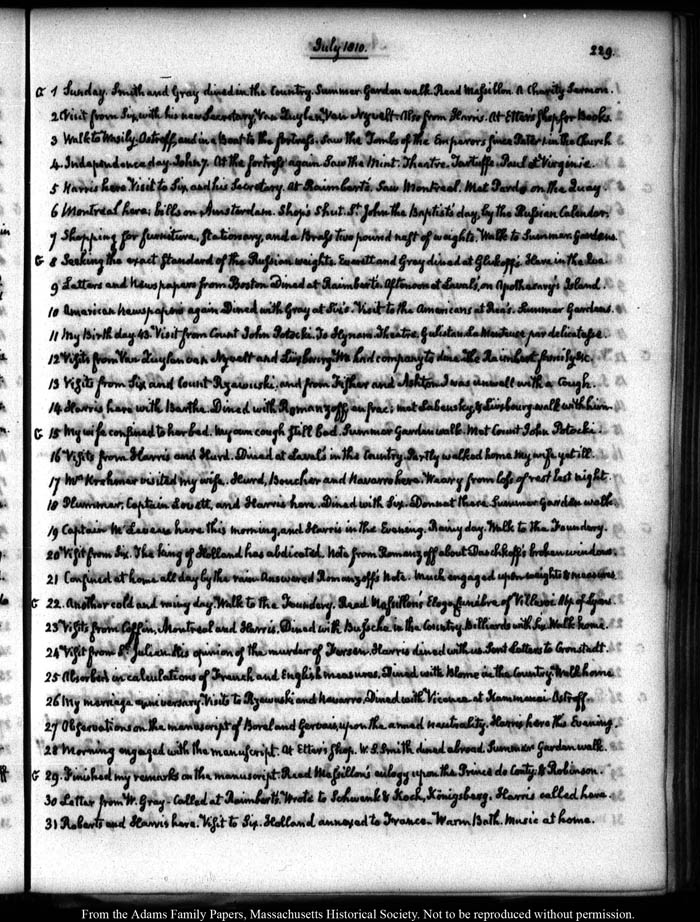 July 1810.
229.
G 1 Sunday. Smith and Gray dined in the Country. Summer Garden walk. Read Massillon. A Charity Sermon.
2 Visit from Six, with his new Secretary, Van Zuylen, Van Nyvelt. Also from Harris. At Etter's Shop, for Books.
3 Walk to Wasily-Ostroff, and in a Boat to the fortress. Saw the Tombs of the Emperors since Peter 1. in the Church
4. Independence day. John 7. At the fortress again. Saw the Mint. Theatre. Tartuffe. Paul et Virginie.
5 Harris here. Visit to Six, and his Secretary. At Raimbert's. Saw Montreal. Met Pardo on the Quay.
6 Montreal here; bills on Amsterdam. Shop's Shut. St. John the Baptist's day, by the Russian Calendar.
7 Shopping for furniture, stationary, and a Brass two pound nest of weights. Walk to Summer Gardens.
G 8 Seeking the exact Standard of the Russian weights. Everett and Gray dined at Gliskoff's. Here in the Eve.
9 Letters and Newspapers from Boston. Dined at Raimbert's. Afternoon at Laval's, on Apothecary's Island.
10 American Newspapers again. Dined with Gray at Six's. Visit to the Americans at Rea's. Summer Gardens.
11 My Birth day. 43. Visit from Count John Potocki. To Hynam. Theatre. Gulistan. La Menteuse par delicatesse.
12 Visits from Van Zuylen van Nyvelt and Luxburg. We had company to dine. The Raimbert family &c.
13 Visits from Six and Count Rzewuski; and from Fisher and Ashton. I was unwell with a Cough.
14 Harris here with Barthe. Dined with Romanzoff, en frac; met Labensky, & Luxbourg. walk with him.
G 15 My wife confined to her bed. My own cough still bad. Summer Garden walk. Met Count John Potocki.
16 Visits from Harris and Hurd. Dined at Laval's in the Country. Partly walked home. My wife yet ill.
17 Mrs. Krehmer visited my wife. Hurd, Boucher and Navarro here. Weary from loss of rest last night.
18 Plummer, Captain Lovett, and Harris here. Dined with Six. Donnat there. Summer Garden walk.
19 Captain here this morning, and Harris in the Evening. Rainy day. Walk to the Foundery.
20 Visit from Six. The king of Holland has abdicated. Note from Romanzoff about Daschkoff's broken windows.
21 Confined at home all day by the rain. Answered Romanzoff's Note. Much engaged upon weights & measures.
G 22. Another cold and rainy day. Walk to the Foundery. Read Massillon's Eloge funèbre of Villeroi Abp. of Lyons.
23 Visits from Coffin, Montreal and Harris. Dined with Bussche in the Country. Billiards with Six. Walk home.
24 Visit from St. Julien. His opinion of the murder of Fersen. Harris dined with us. Sent Letters to Cronstadt.
25 Absorbed in calculations of French and English measures. Dined with Blome in the Country. Walk home
26 My marriage anniversary. Visits to Rzewuski and Navarro. Dined with Vicence at Kammenoi-Ostroff.
27 Observations on the manuscript of Borel and Gervais, upon the armed neutrality. Harris here this Evening.
28 Morning engaged with the manuscript. At Etter's Shop. W. S. Smith dined abroad. Summer Garden walk.
G 29. Finished my remarks on the manuscript. Read Massillon's eulogy upon the Prince de Conty. & Robinson.
30 Letter from W. Gray. Called at Raimbert's. Wrote to Schwenk & Koch, Königsberg. Harris called here.
31 Roberts and Harris here. Visit to Six. Holland annexed to France. Warm Bath. Music at home.
From the Adams Family Papers, Massachusetts Historical Society. Not to be reproduced without permission.